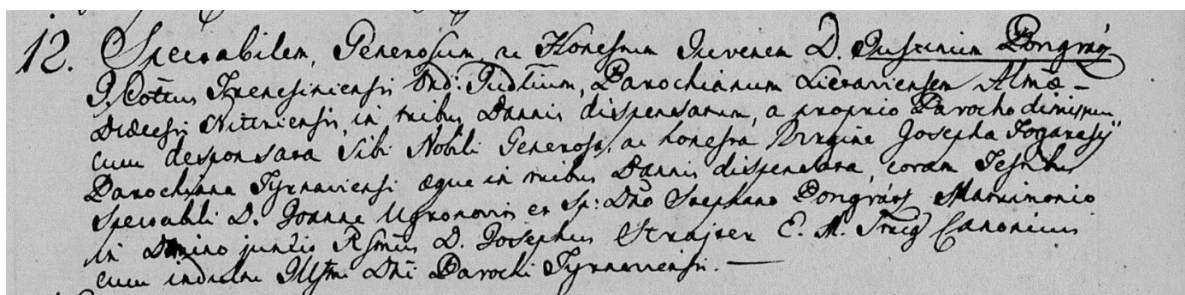 12. Spectabilem, Generosum ac Honestum Juvenem D. Justinum Pongrátz
I. Cottus Trenchiniensis Ord: Judlium, Parochianum Lietaviensem Almæ –
Diæcesis Nitriensis, in tribus Bannis dispensatum, a proprio Parocho dimissum
cum desponsata Sibi Nobili Generosa, ac honesta Virgine Josepha Fogarassy
Parochiana Tyrnaviensi æque in tribus Bannis dispensata, coram Testibus
Spectabili D. Joanne Ugronovits et Sp: Dno Stephano Pongrátz Matrimonio
in Domino junxit Rsmus D. Josephus E. M. Strig Canonicus
cum indultu Illsmi Dni Parochi Tyrnaviensis. —